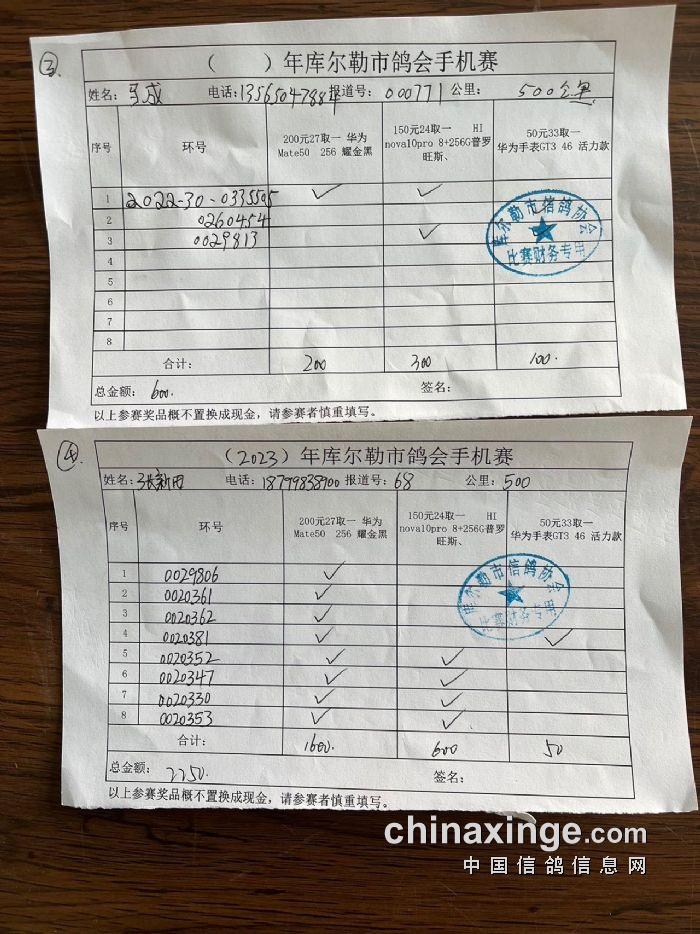 ③.
（ ）年库尔勒市鸽会手机赛
姓名: 马成 电话: 报道号: 000771 公里: 500公里
序号 环号 200元27取一 华为Mate50 256 耀金黑 150元24取一 HI nova10pro 8+256G普罗旺斯、 50元33取一 华为手表GT3 46 活力款
1 2022-30-0335505 ✓ ✓
2 0260454
3 0029813 ✓
4
5
6
7
8
库尔勒市信鸽协会
比赛财务专用
合计: 200 300 100.
总金额: 600. 签名:
以上参赛奖品概不置换成现金，请参赛者慎重填写。
④.
（2023）年库尔勒市鸽会手机赛
姓名: 张新田 电话: 18799838900 报道号: 68 公里: 500
序号 环号 200元27取一 华为Mate50 256 耀金黑 150元24取一 HI nova10pro 8+256G普罗旺斯、 50元33取一 华为手表GT3 46 活力款
1 0029806 ✓
2 0020361 ✓
3 0020362 ✓
4 0020381 ✓ ✓
5 0020352 ✓ ✓
6 0020347 ✓ ✓
7 0020330 ✓ ✓
8 0020353 ✓ ✓
库尔勒市信鸽协会
比赛财务专用
合计: 1600. 600 50
总金额: 2250. 签名:
以上参赛奖品概不置换成现金，请参赛者慎重填写。
chinaxinge.com
中国信鸽信息网